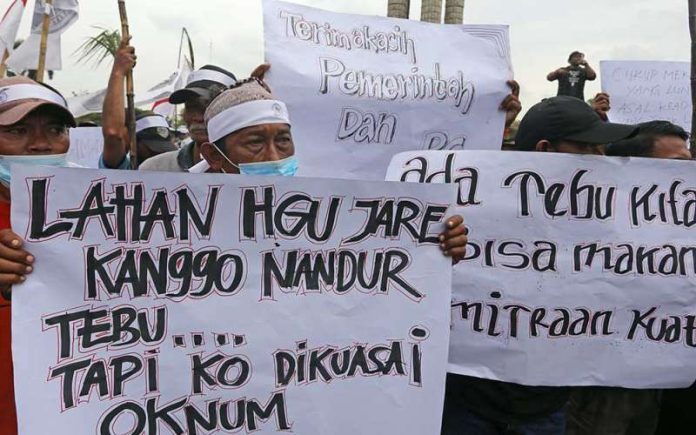 Terimakasih
Pemerintah
Dan
LAHAN HGU JARE
KANGGO NANDUR
TEBU....
TAPI KO DIKUASAI
OKNUM
ada Tebu Kita
bisa makan
mitraan Kuat
CUKUP
YANG
ASAL